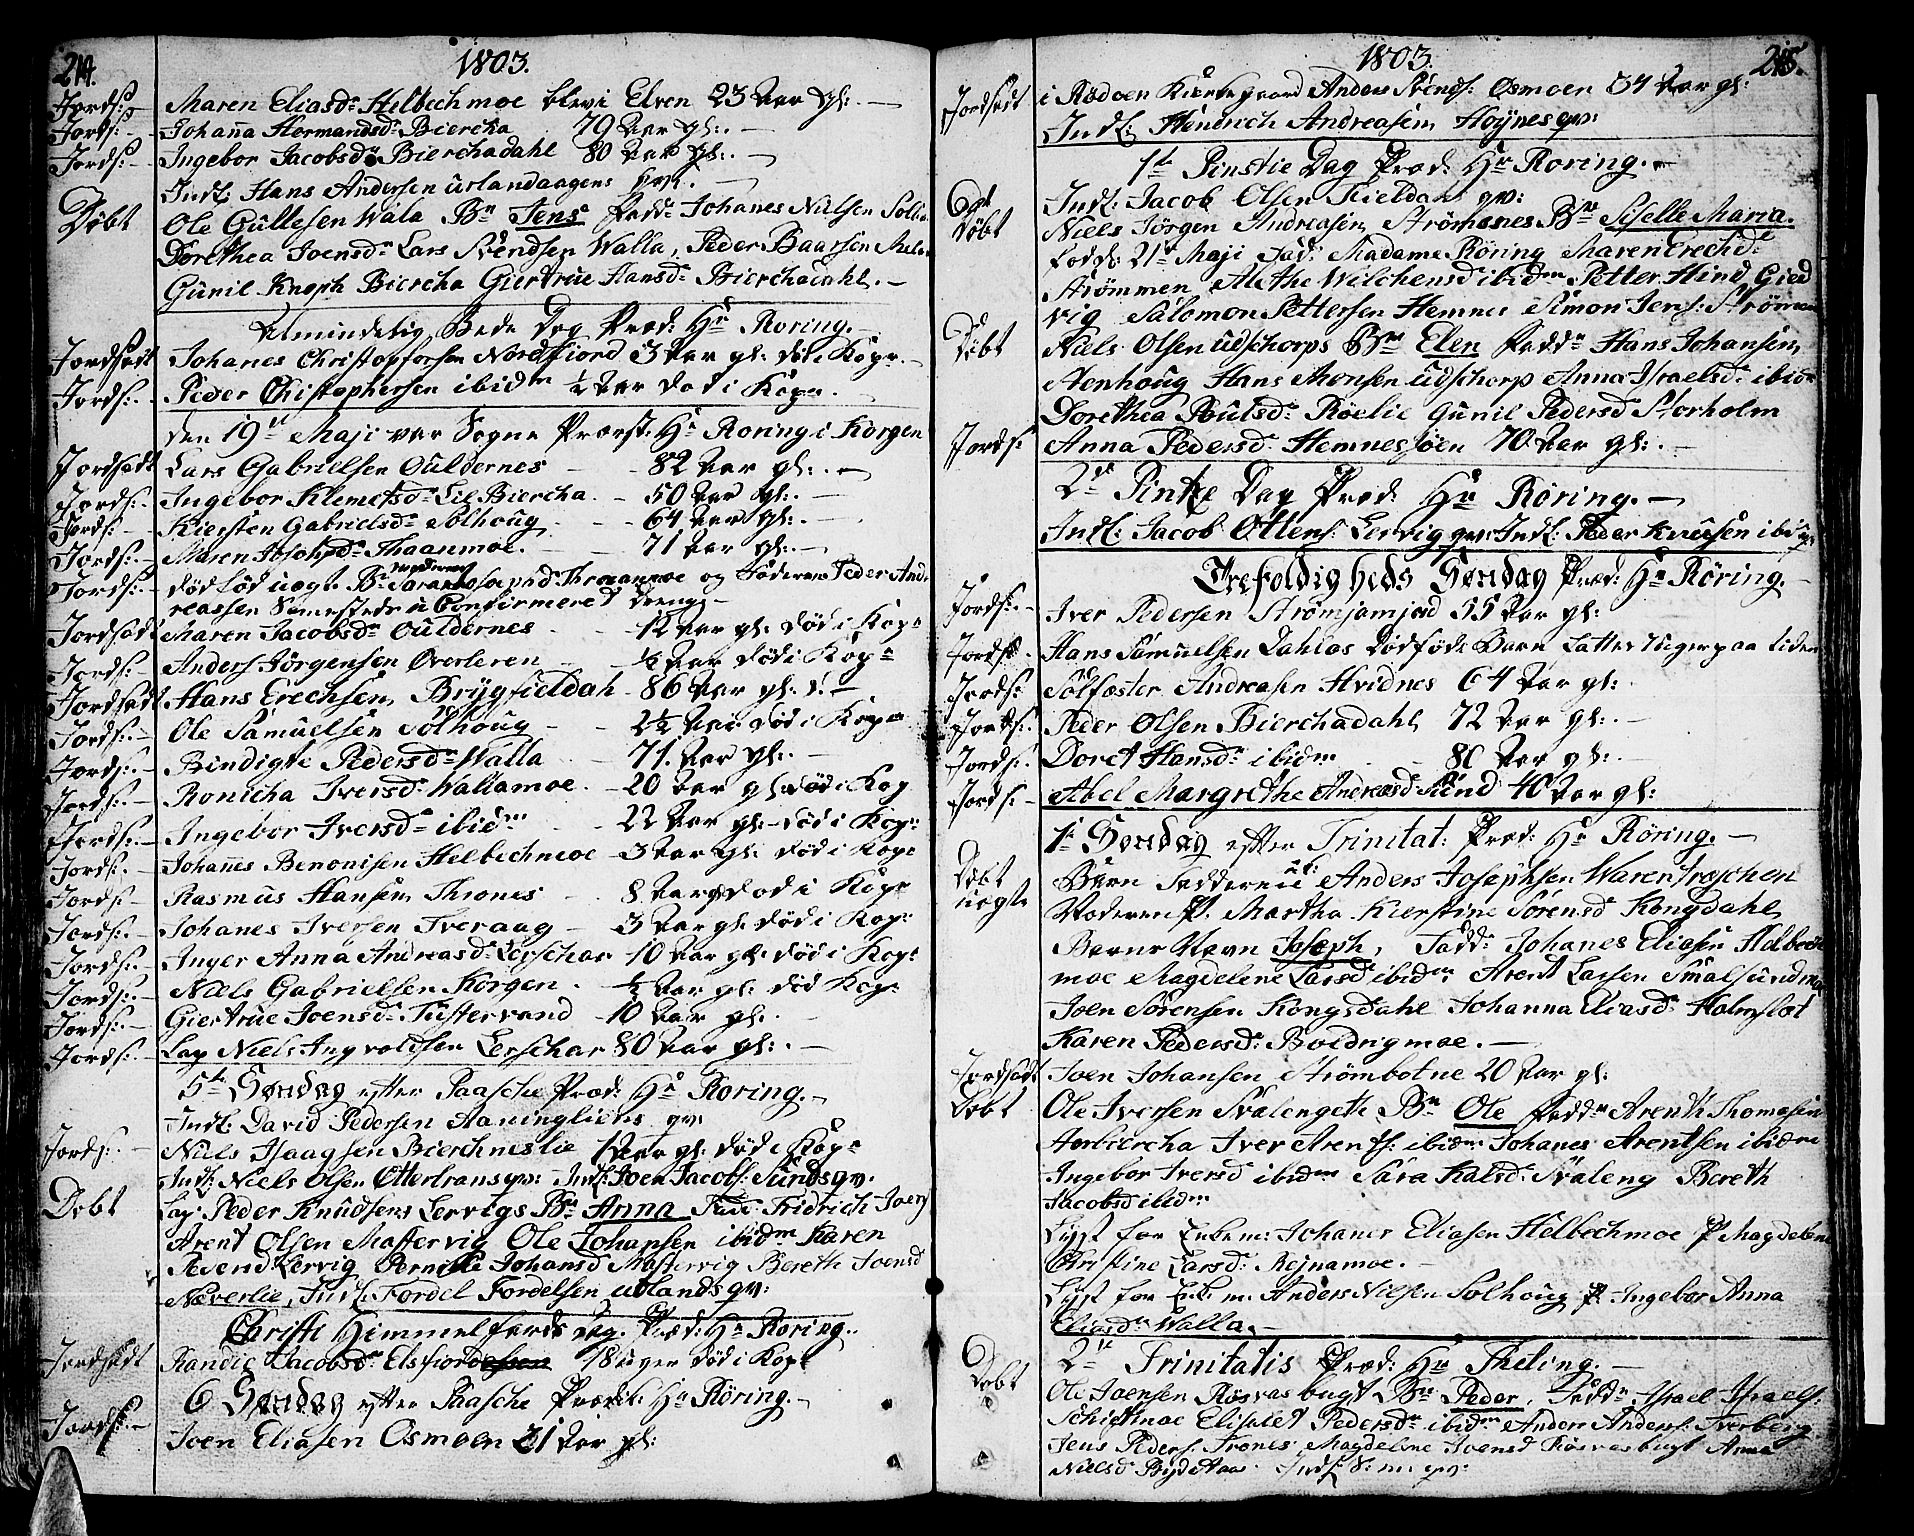 214.
1803.
Jordf: Maren Eliasd: Helbechmoe blev i Elven 23 Aar gl:
Jordf: Johanna Hermandsd: Biercha 79 Aar gl:
Jordf: Ingebor Jacobsd: Bierchadahl 80 Aar gl:
Indl: Hans Andersen
Døbt Ole Gullesen Wala Bn Jens Fadd: Johanes Nielsen
Dorethea Joensd: Lars Svendsen Walla, Peder Baarsen
Gunil Knoph Biercha Giertrue Hansd: Bierchadahl.
Almindelig Bede Dag Præd: Hr Roring.
Jordsadt Johanes Christophersen Nordfiord 3 Aar gl: død i Kop:
Jordf: Peder Christophersen ibidm ½ Aar død i Kop:
den 19de Maji var Sogne Præst: Hr Roring i Korgen
Jordsadt Lars Gabrielsen Ouldernes 82 Aar gl:
Jordf: Ingebor Klemetsd: Lie Biercha 50 Aar gl:
Jordf: Kiersten Gabrielsd: Solhoug 64 Aar gl:
Jordf: Maren Josephsd: Thraanmoe 71 Aar gl:
Jordf: død fød uægt Bn Moderen Sara Josephsd: Thraanmoe og Faderen Peder And
reassen u Confirmered Dreng
Jordsadt Maren Jacobsd: Ouldernes 12 Aar gl: død i Kop:
Jordf: Anders Jørgensen Overleren ½ Aar død i Kop:
Jordsadt Hans Erechsen Brygfieldah 86 Aar gl:
Jordf: Ole Samuelsen Solhoug 2½ Aar død i Kop:
Jordf: Bindigte Pedersd: Walla 71 Aar gl:
Jordf: Ronicha Iversd: Wallamoe 20 Aar gl: død i Kop
Jordf: Ingebor Iversd: ibidm 22 Aar gl: død i Kop:
Jordf: Johanes Benonisen Helbechmoe 3 Aar gl: død i Kop:
Jordf: Rasmus Hansen Thrones 8 Aar gl død i Kop:
Jordf: Johanes Iversen Tveraag 3 Aar gl: død i Kop:
Jordf: Inger Anna Andreasd: Lerschar 10 Aar gl: død i Kop:
Jordf: Niels Gabrielsen Korgen ½ Aar gl: død Kop:
Jordf: Giertrue Joensd: Tustervand 10 Aar gl:
Jordf: Lap Niels Ingvoldsen Lerschar 80 Aar gl:
5te Søndag efter Paasche Præd: Hr Roring.
Indl: David Pedersen qv:
Jordf: Niels Haagsen Bierchneslie 1 Aar gl: død i Kop:
Indl: Niels Olsen Ottertrans qv: Indl: Joen Jacobs: Sunds qv.
Døbt Lap: Peder Knudsens Lervigs Bn Anna Fad: Fridrich Joens
Arent Olsen Mastervig Ole Johansen ibidm Karen
Lervig Pernille Johansd Mastervig Bereth Joensd
Næverlie, Indl: Fordel Fordelsen utlands qv:
Christi Himmelferds Dag. Præd: Hr Roring.
Jordsadt Randie Jacobsd: Elsfiord 18 uger død i Kop:
6 Søndag efter Paasche Præd: Hr Røring.
Jordf: Joen Eliasen Osmoen 31 Aar gl:
1803.
215.
Jordsadt i Rødøen Kierkegaard Anders Svends: Osmoen 34 Aar gl:
Indl: Hendrich Andreasen Høynes qv:
1ste Pinstie Dag Præd: Hr Roring.
Indl: Jacob Olsen Kieldahl qv:
Døbt Niels Jørgen Andreasen Strømenes Bn Siselle Maria.
fødd: 21de Maji Fad: Madame Røring Maren Erechd:
Strømmen Alethe Wilchensd ibidm Petter Hind Gied
vig Salomon Pettersen Hemnes Simon Jens: Strømen
Døbt Niels Olsen udschorps Bn Elen Fadd: Hans Johansen
Hans Monsen udschorp Anna Israelsd: ibidm
Dorethea Poulsd: Røelie Gunil Pedersd Storholm
Jordf: Anna Pedersd Hemnessøen 70 Aar gl:
2den Pintze Dag Præd: Hr Røring.
Indl: Jacob Ottens: Lervig qv: Indl: Peder Knudsen ibid qv
Trefoldigheds Søndag Præd: Hr Røring.
Jordf: Iver Pedersen 55 Aar gl:
Jordf: Hans Samuelsen Dahlas dødføde Barn
Jordf: Solfæster Andreasen Hvidnes 64 Aar gl:
Jordf: Peder Olsen Bierchadahl 72 Aar gl:
Jordf: Doret Hansd: ibidm 80 Aar gl:
Jordf: Abel Margrethe Andreasd Sund 40 Aar gl:
1te Søndag efter Trinitat: Præd: Hr Røring.
Døbt uægte Barn Fadderen Anders Josephsen
Moderen P. Martha Kierstine Sørensd Kongdahl
Barns Navn Joseph, Fadd: Johanes Eliasen Helbech
moe Magdelene Larsd ibidm Arent Larsen Smalsundmo
Joen Sørensen Kongsdahl Johanna Eliasd:
Karen Pedersd:
Jordsadt Joen Johansen Strømbotne 20 Aar gl:
Døbt Ole Iversen Svalengets Bn Ole Fadd: Arenth Thomesen
Aorbiercha Iver Arents: ibidm Johanes Arentsen ibidm
Ingebor Iversd ibidm Sara Kalsd: Svaleng Bereth
Jacobsd ibidm
Lyst for Johanes Eliasen Helbechmoe P Magdelene
Christine Larsd: Rejnamoe.
Lyst for Anders Nilsen Solhoug P Ingebor Anna
Eliasd: Walla.
2den Trinitatis Præd: Hr Theting.
Døbt Ole Joensen Røsvasbugt Bn Peder, Fadd: Israel Israels:
Elisbet Pedersd: ibidm Anders Anders:
Jens Peders: Trones, Magdeline Joensd Røsvasbugt Anna
Nielsd